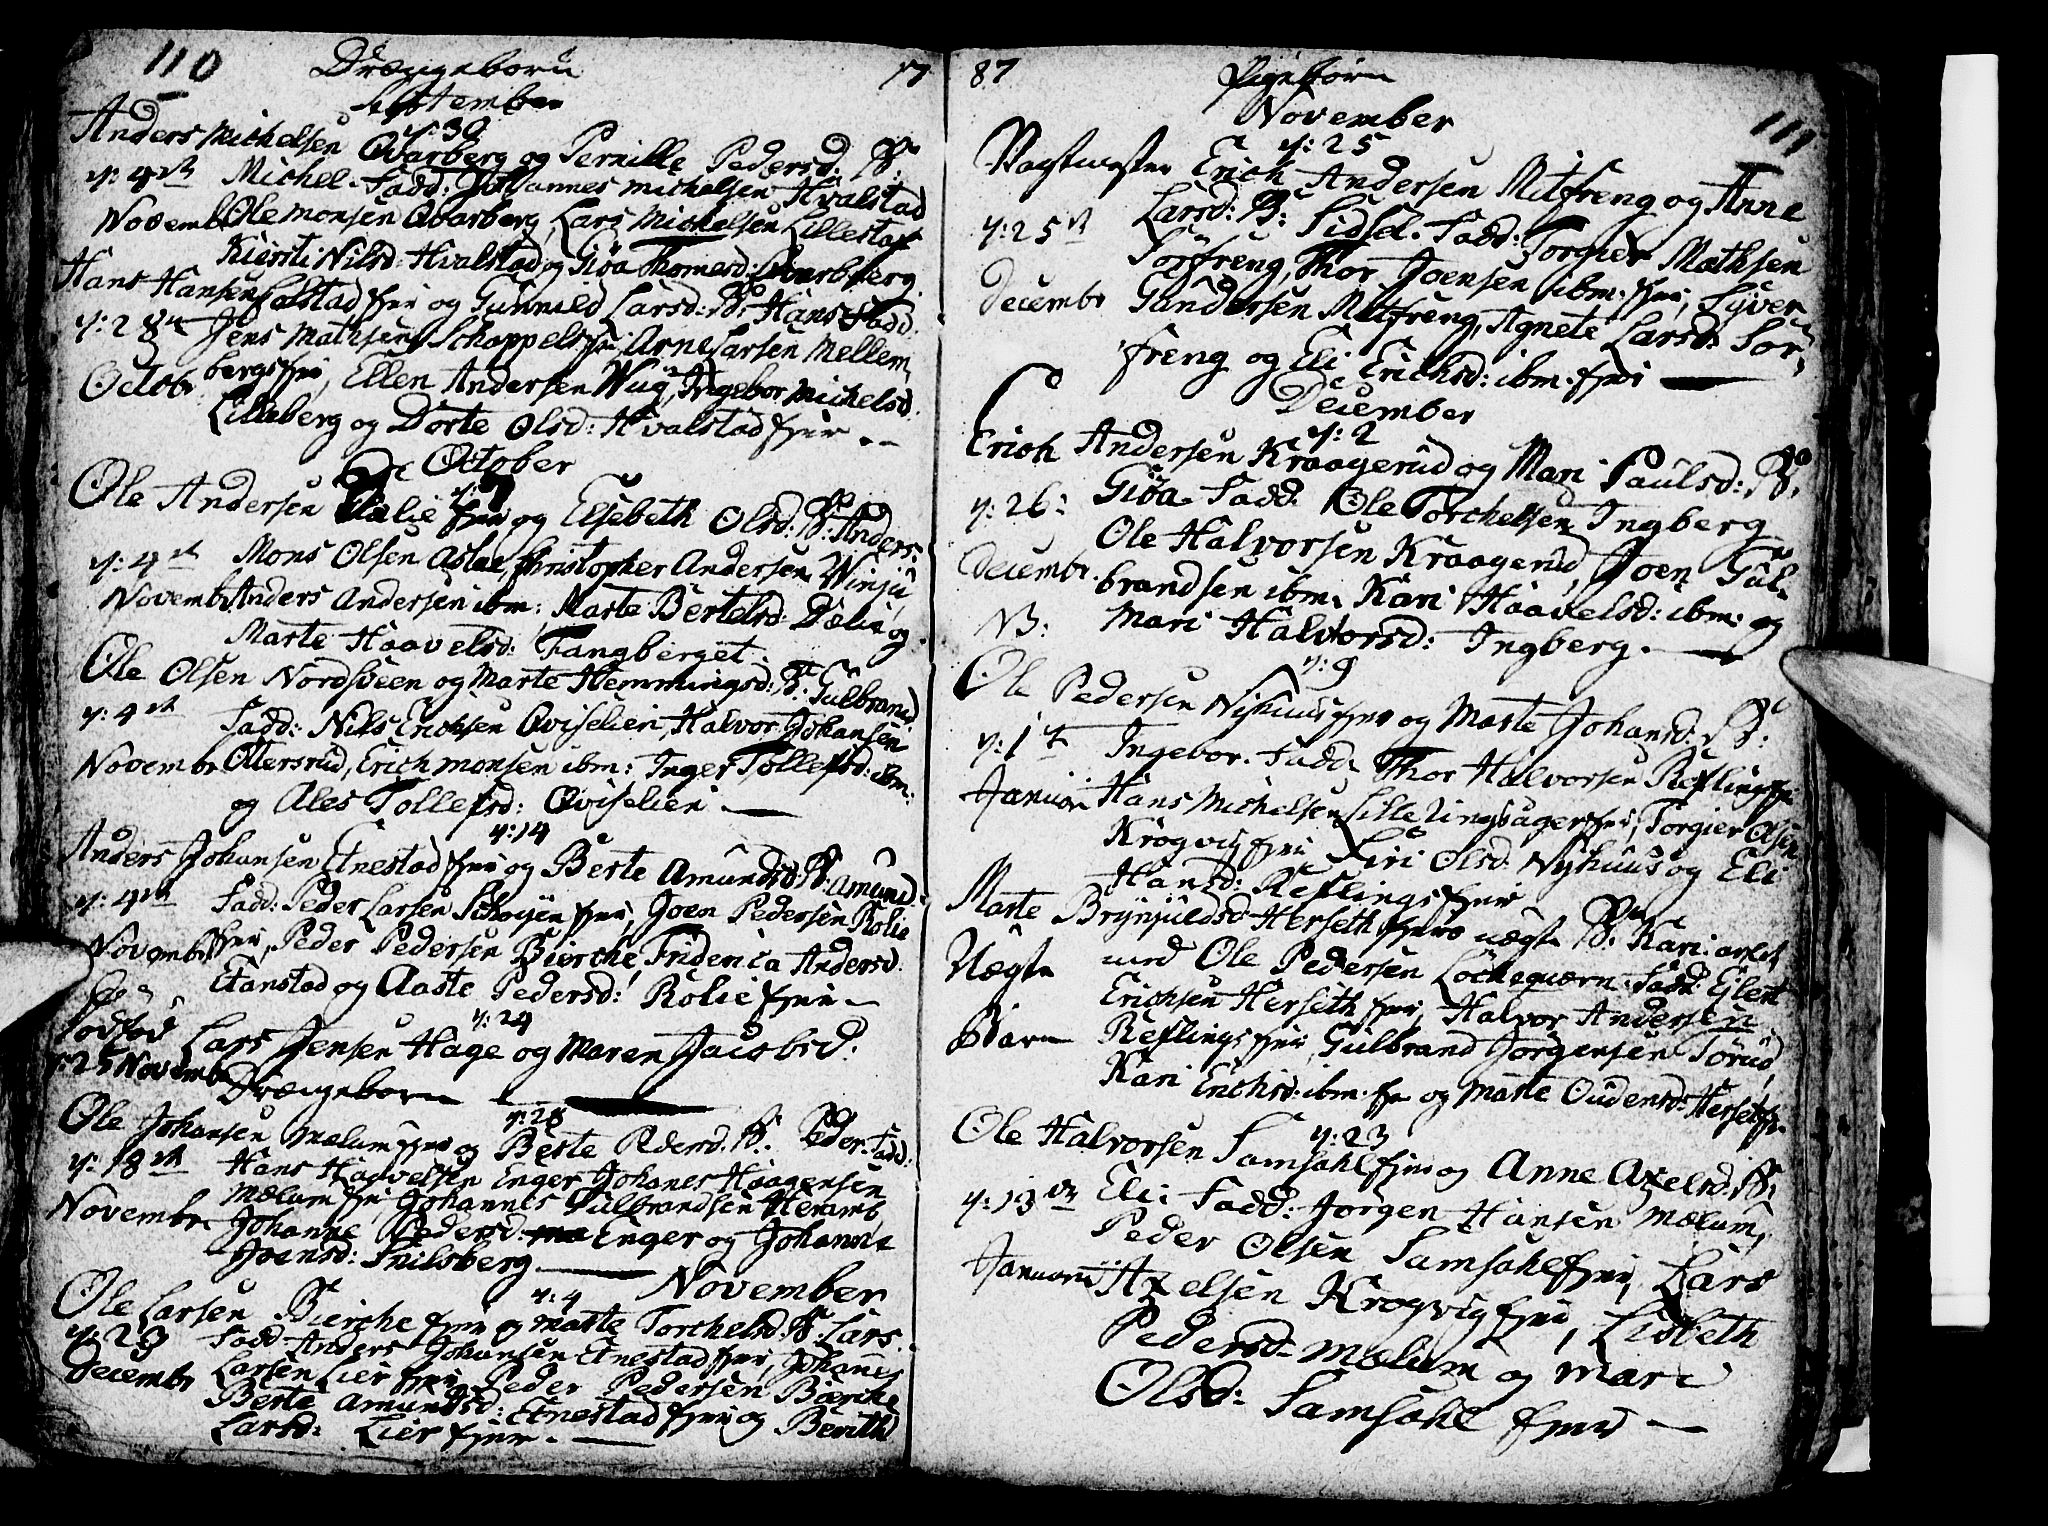 110 Drængebørn 17
September
d: 30
Anders Michelsen Qvarberg og Pernille Pedersd: B:
d: 4de Michel. Fadd: Johannes Michelsen Hvalstad
Novembr Ole Monsen Qvarberg, Lars Michelsen Lillestad
Kiersti Nilsd: Hvalstad og Giöa Thomasd: Qvarberg.
Hans Hansen Falstad ejer og Gunnild Larsd: B: Hans Fadd:
d: 28 Jens Mathsen Schappels ejer, Arne Larsen Mellem
Octobr bergs ejer, Ellen Andersen Wug, Ingebor Michelsd.
Lilleberg og Dorte Olsd: Hvalstad ejer.
October
Ole Andersen Dælie ejer og Elsebeth Olsd: B: Anders:
d: 4de Mons Olsen Aslae, Christopher Andersen Winju,
Novembr Anders Andersen ibm: Marte Bertelsd: Dælie og
Marte Haavelsd: Fangberget.
Ole Olsen Nordsveen og Marte Hemmingsd: B: Gulbrand
d: 4de Fadd: Nils Erichsen Qviselien, Halvor Johansen
Novembr Ottersrud, Erich Monsen ibm: Inger Tollefsd: ibm:
og Ales Tollefsd: Qviselien.
d: 14
Anders Johansen Etnestad ejer og Berte Amundsd: B: Amund:
d: 4de Fadd: Peder Larsen Schoyen ejer, Joen Pedersen Rolie
Novembr ejer, Peder Pedersen Bierche, Friderica Andersd.
Etanstad og Aaste Pedersd: Rolie ejer
d: 24
Lars Jensen Hage og Maren Jacobsd:
d: 25 Novembr Drængebarn
d: 28
Ole Johansen Mælum ejer og Berte Pedersd. B: Peder. Fadd:
d: 18de Hans Haavelsen Enger Johanes Haagensen
Mælum ejer, Johannes Gulbrandsen Hemmb,
Novembr Johanne Pedersd: Enger og Johanne
Joensd: Snilsberg.
November
d: 4
Ole Larsen Bierche ejer og Marte Torchelsd: B: Lars.
d: 23 Fadd: Anders Johansen Etnestad ejer, Johanes
Decembr Larsen Lier ejer, Peder Pedersen Bierche
Berte Amundsd: Etnestad ejer og Berith
Larsd: Lier ejer.
87 Pigebørn
November 111
d: 25
Vagtmester Erich Andersen Mitfreng og Anne
d: 25de Larsd: B: Sidsel. Fadd: Torgier Mathsen
Sörfreng, Thor Joensen ibm: ejer, Syver
Decembr Gundersen Mitfreng, Agnete Larsd: Sör,
freng og Eli Erichsd: ibm: ejer
December
d: 2
Erich Andersen Kraagerud og Mari Paulsd: B:
d: 26: Giöa. Fadd: Ole Torchelsen Ingberg
Ole Halvorsen Kraagerud, Joen Gul,
Decembr. brandsen ibm, Kari Haavelsd: ibm: og
NB: Mari Halvorsd: Ingberg.
d: 9
Ole Pedersen Nyhuus ejer og Marte Johansd: B:
d: 1te Ingebor. Fadd: Thor Halvorsen Reflings ejer
Januari Hans Michelsen Lille Ringsager ejer, Torgier Olsen
Krogvig ejer, Siri Olsd: Nyhuus og Eli
Hansd: Reflings ejer
Marte Brynjuldsd: Herseth ejers uægte B: Kari: avlet
Uægte med Ole Pedersen Locheqværn. Fadd: Ejlert
Erichsen Herseth ejer, Halvor Andersen
Barn Reflings ejer, Gulbrand Jörgensen Törud,
Kari Erichsd: ibm. ejer og Marte Oudensd: Herseth ejer
d: 23
Ole Halvorsen Samsahl ejer og Anne Axelsd: B:
d: 13de Eli. Fadd: Jörgen Hansen Mælum,
Peder Olsen Samsahl ejer, Lars
Januarii Axelsen Krogvig ejer, Lisbeth
Pedersd: Mælum og Mari
Olsd: Samsahl ejer